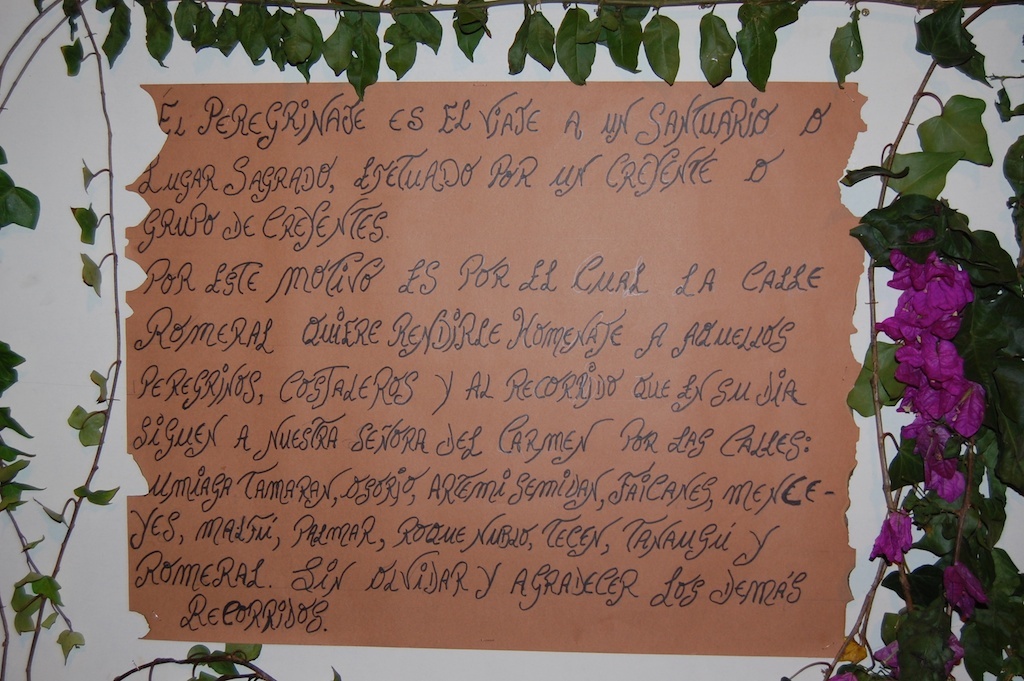 EL PEREGRINAJE ES EL VIAJE A UN SANTUARIO O
LUGAR SAGRADO, EFETUADO POR UN CREYENTE O
GRUPO DE CREYENTES.
POR ESTE MOTIVO ES POR EL CUAL LA CALLE
ROMERAL QUIERE RENDIRLE HOMENAJE A AQUELLOS
PEREGRINOS, COSTALEROS Y AL RECORRIDO QUE EN SU DIA
SIGUEN A NUESTRA SEÑORA DEL CARMEN POR LAS CALLES:
UMIAGA TAMARAN, OSORIO, ARTEMI SEMIDAN, FAICANES, MENCE-
YES, MALFÚ, PALMAR, ROQUE NUBLO, TECEN, TANAUGÚ Y
ROMERAL. SIN OLVIDAR Y AGRADECER LOS DEMÁS
RECORRIDOS.